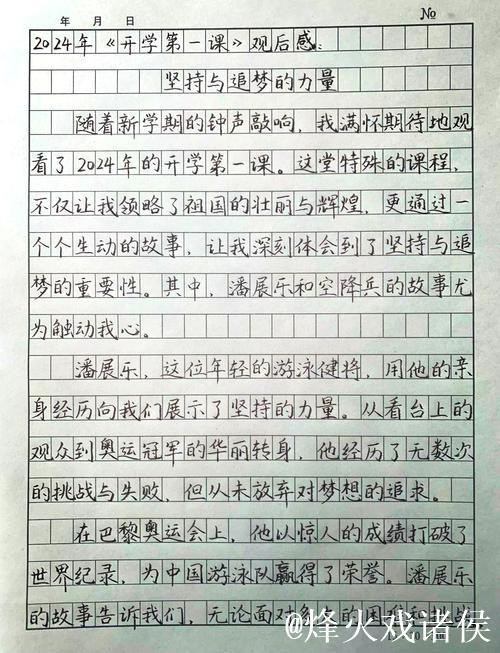 年 月 日 №
2024年《开学第一课》观后感:
坚持与追梦的力量
随着新学期的钟声敲响，我满怀期待地观
看了2024年的开学第一课。这堂特殊的课程，
不仅让我领略了祖国的壮丽与辉煌，更通过一
个个生动的故事，让我深刻体会到了坚持与追
梦的重要性。其中，潘展乐和空降兵的故事尤
为触动我心。
潘展乐，这位年轻的游泳健将，用他的亲
身经历向我们展示了坚持的力量。从看台上的
观众到奥运冠军的华丽转身，他经历了无数次
的挑战与失败，但从未放弃对梦想的追求。
在巴黎奥运会上，他以惊人的成绩打破了
世界纪录，为中国游泳队赢得了荣誉。潘展乐
的故事告诉我们，无论面对
@烽火戏诸侯